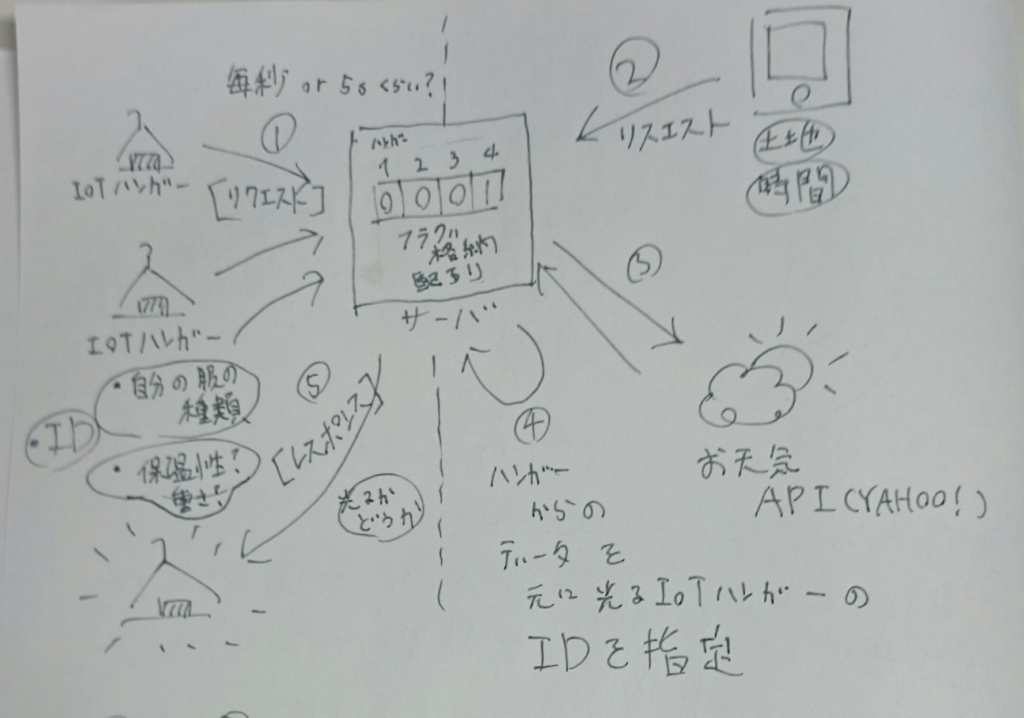 毎秒 or 5sくらい?
①
[リクエスト]
IoTハンガー
IoTハンガー
ハンガー
1 2 3 4
0 0 0 1
フラグ
格納
配列
サーバ
②
リスエスト
土地
時間
③
お天気
API(YAHOO!)
・ID
・自分の服の
種類
・保温性?
⑤
[レスポンス]
光るか
どうか
④
ハンガー
からの
データを
元に光るIoTハンガーの
IDを指定